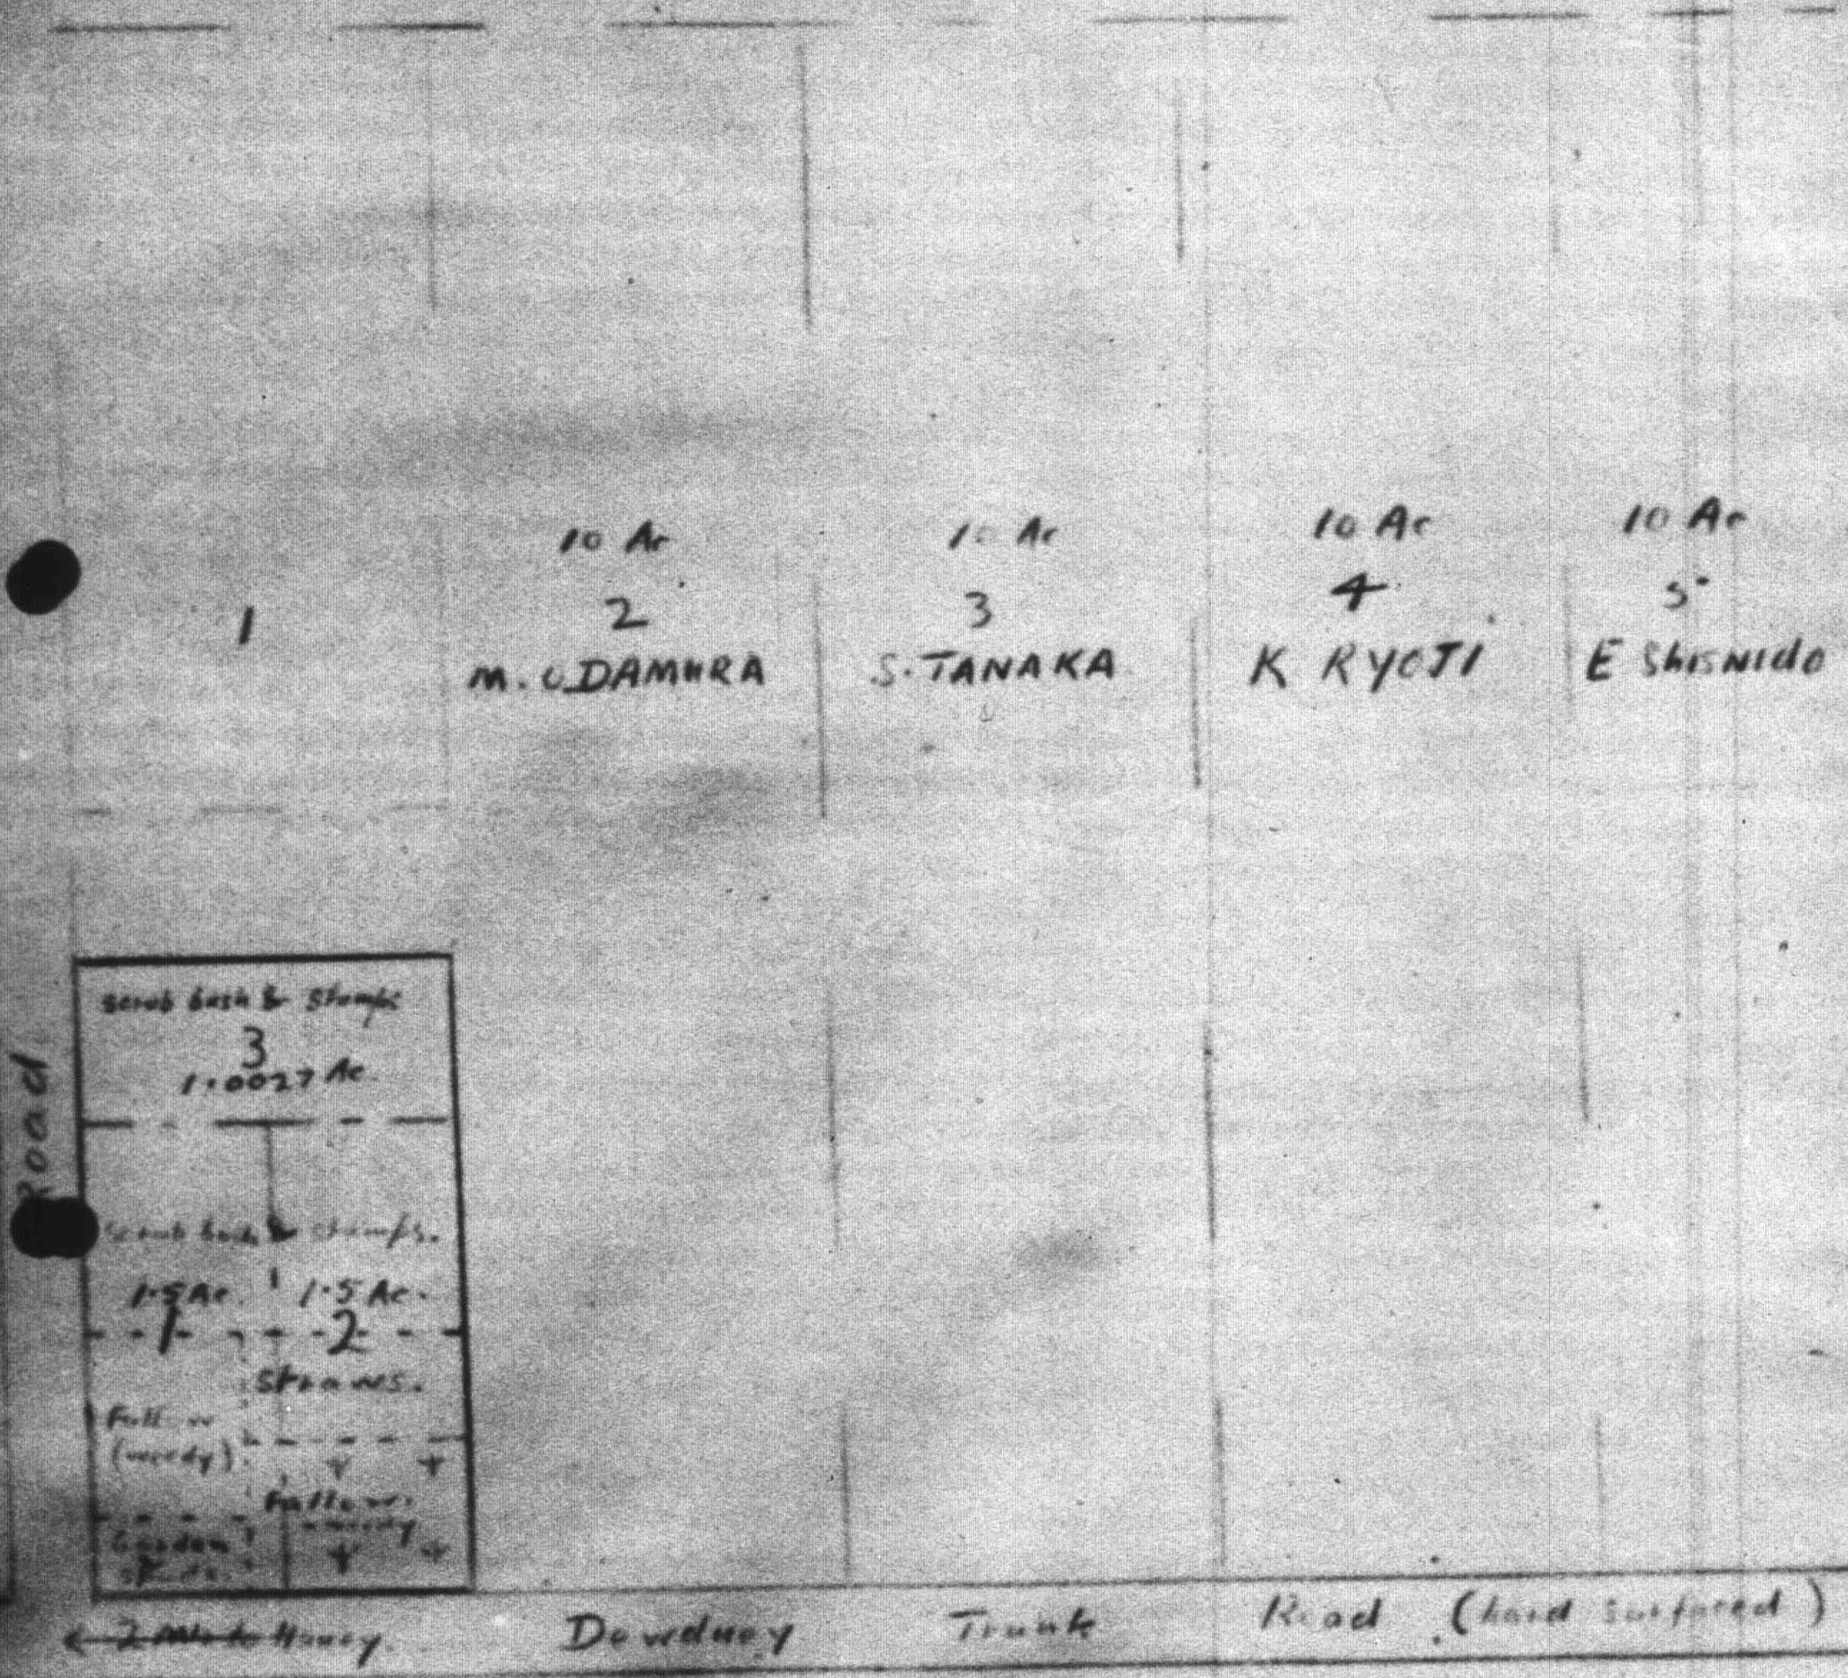 10 Ac
10 Ac
10 Ac
10 Ac
1
2
3
4
5
M. ODAMURA
S. TANAKA
K RYOJI
E ShisNIdo
Scrub bush & Stumps
3
1.0027 Ac.
Road
Scrub bush & stumps.
1.5 Ac.
1.5 Ac.
1
2
Straws.
Fallow
(weedy)
Fallow.
weedy
Garden
← 2 Mls to Haney.
Dewdney Trunk Road (hard surfaced)